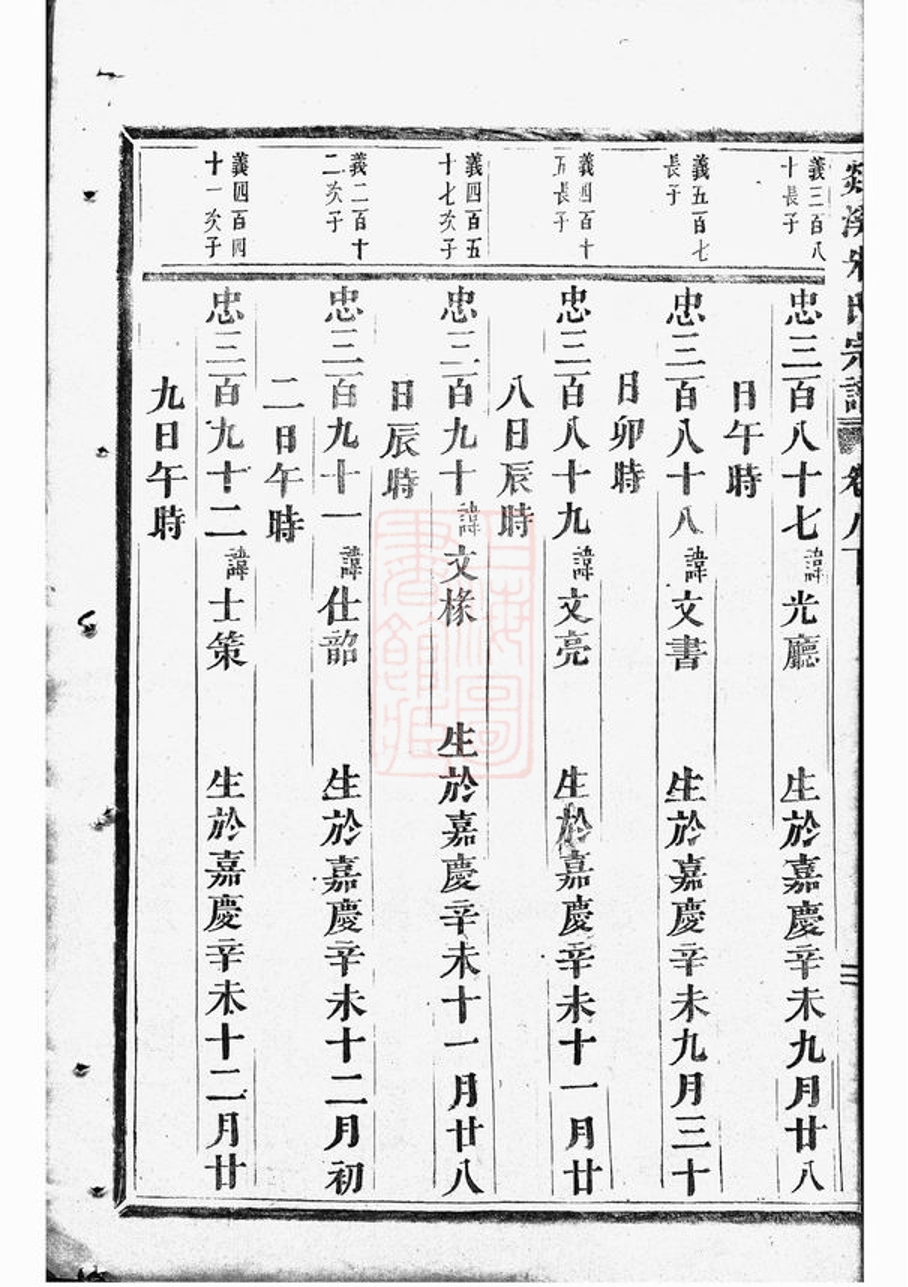 氏宗譜 卷八下
義三百八
十長子
忠三百八十七諱光廳 生於嘉慶辛未九月廿八
日午時
義五百七
長子
忠三百八十八諱文書 生於嘉慶辛未九月三十
日卯時
義四百十
五長子
忠三百八十九諱文亮 生於嘉慶辛未十一月廿
八日辰時
義四百五
十七次子
忠三百九十諱文椽 生於嘉慶辛未十一月廿八
日辰時
義二百十
二次子
忠三百九十一諱仕韶 生於嘉慶辛未十二月初
二日午時
義四百四
十一次子
忠三百九十二諱士策 生於嘉慶辛未十二月廿
九日午時